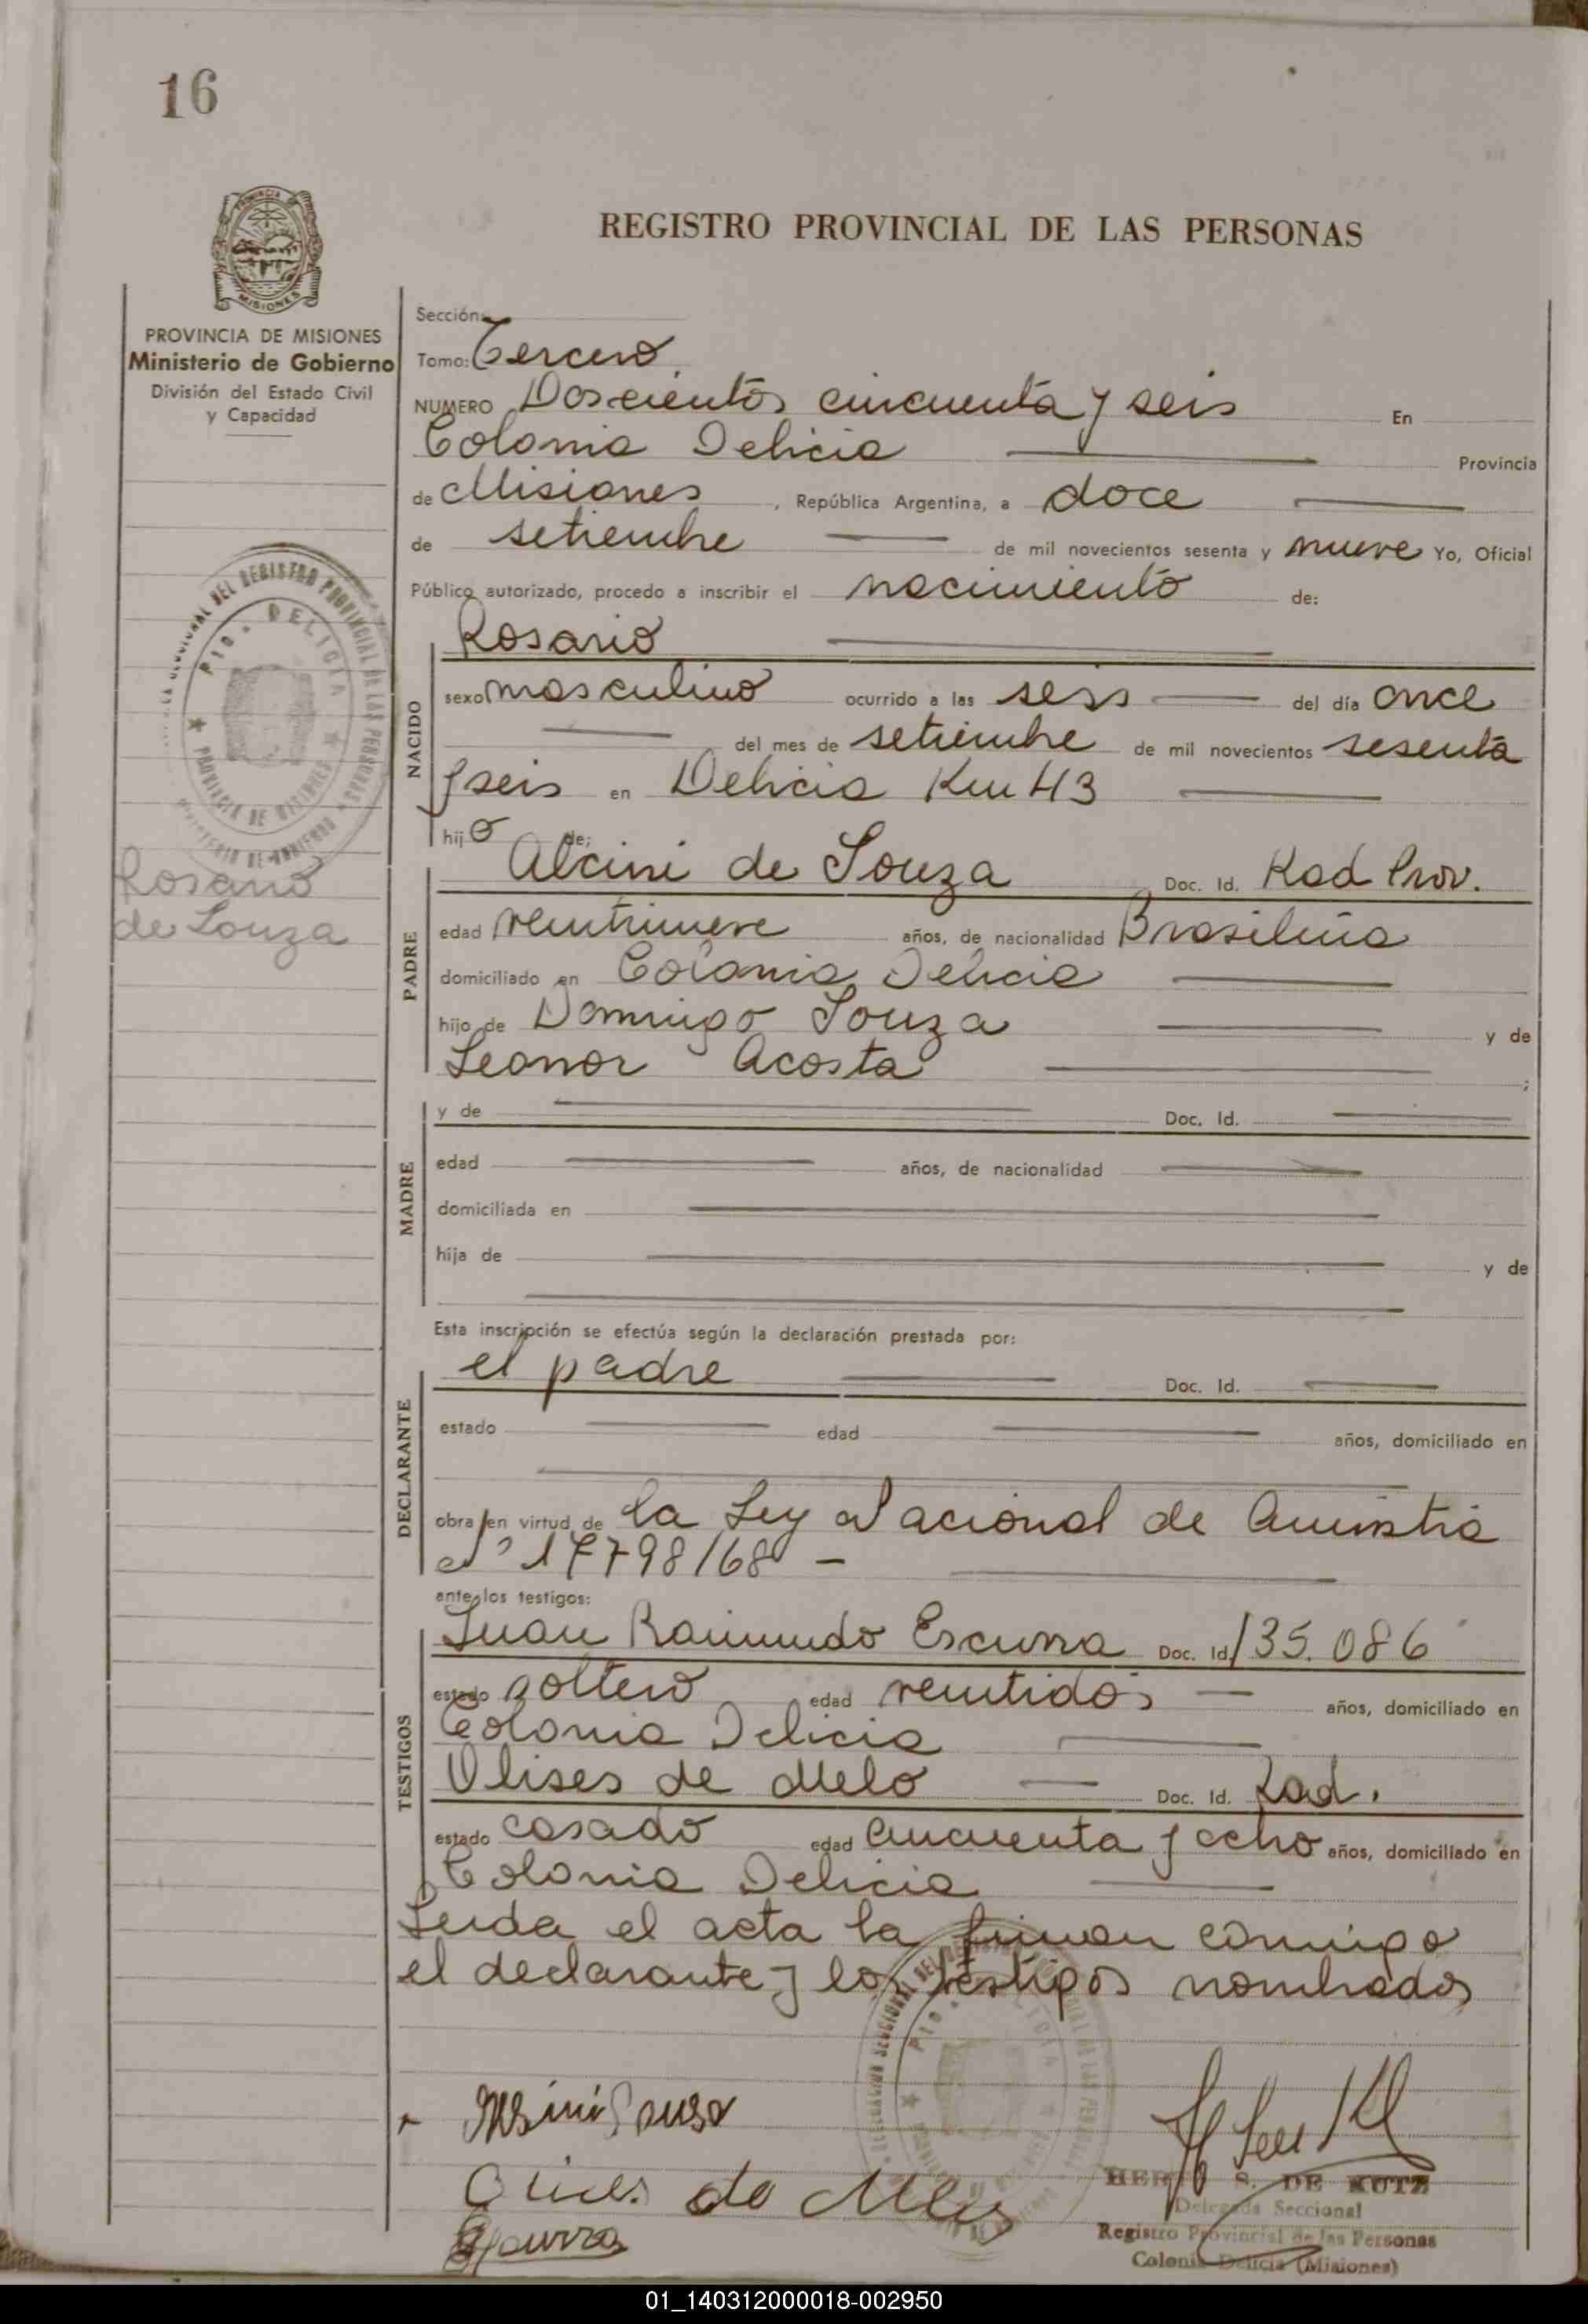 16
REGISTRO PROVINCIAL DE LAS PERSONAS
MISIONES
PROVINCIA DE MISIONES
Ministerio de Gobierno
División del Estado Civil
y Capacidad
Rosario
de Souza
Sección:
Tomo: Tercero.
NUMERO Doscientos cincuenta y seis En
Colonia Delicia Provincia
de Misiones, República Argentina, a doce
de setiembre de mil novecientos sesenta y nueve Yo, Oficial
Público autorizado, procedo a inscribir el nacimiento de:
Rosario
NACIDO
sexo masculino ocurrido a las seis del día once
del mes de setiembre de mil novecientos sesenta
y seis en Delicia Km 43
hijo de:
PADRE
Alcini de Souza Doc. Id. Rad Prov.
edad veintinueve años, de nacionalidad Brasileña
domiciliado en Colonia Delicia
hijo de Domingo Souza y de
Leonor Acosta ;
MADRE
y de Doc. Id.
edad años, de nacionalidad
domiciliada en
hija de y de
Esta inscripción se efectúa según la declaración prestada por:
DECLARANTE
el padre Doc. Id.
estado edad años, domiciliado en
obra en virtud de la Ley Nacional de Amnistia
Nº 17798/68 -
ante los testigos:
TESTIGOS
Juan Raimundo Escurra Doc. Id. 135.086
estado soltero edad veintidos años, domiciliado en
Colonia Delicia
Ulises de Melo Doc. Id. Rad.
estado casado edad cincuenta y ocho años, domiciliado en
Colonia Delicia
Leida el acta la firman conmigo
el declarante y los testigos nombrados
S. DE KUTZ
Delegada Seccional
Registro Provincial de las Personas
Colonia Delicia (Misiones)
01_140312000018-002950